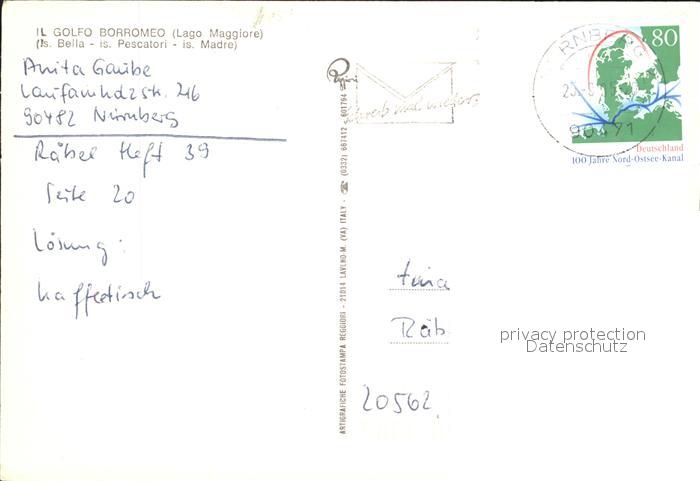 IL GOLFO BORROMEO (Lago Maggiore)
(Is. Bella - is. Pescatori - is. Madre)
Anita Gaube
Laufamholzstr. 246
90482 Nürnberg
Rätsel Heft 39
Seite 20
Lösung:
Kaffeetisch
ARTIGRAFICHE FOTOSTAMPA REGGIORI - 21014 LAVENO-M. (VA) ITALY - ☎ (0332) 667412 - 601794
Schreib mal wieder
80
Deutschland
100 Jahre Nord-Ostsee-Kanal
90471
tina
Rät
20562
privacy protection
Datenschutz